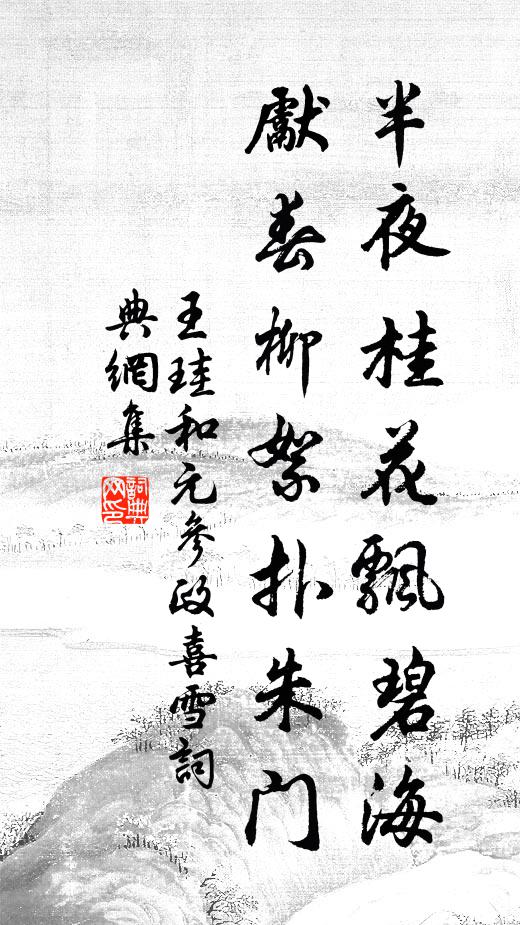 半夜桂花飄碧海
獻春柳絮扑朱门
王珪和元參政喜雪詞
典網集
詞典網印